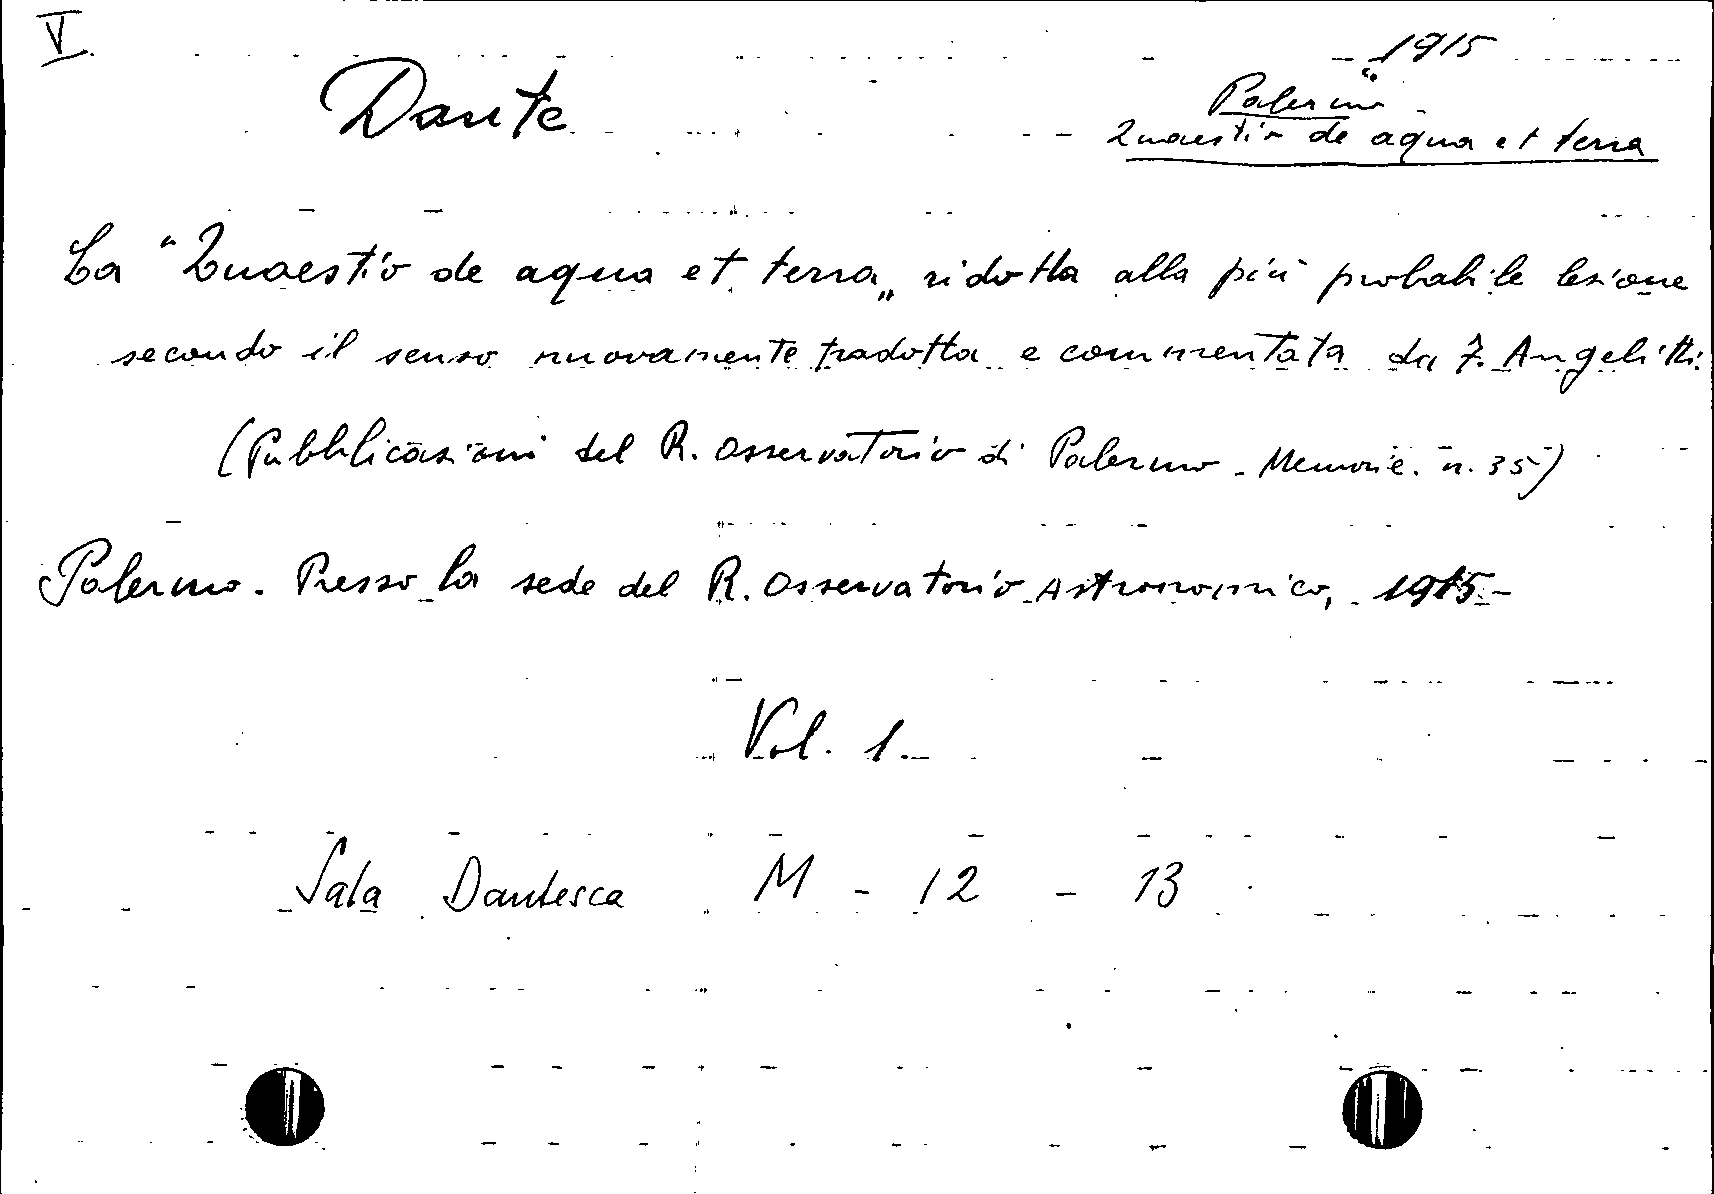 V.
1915
Dante
Palermo
Quaestio de aqua et terra
La "Quaestio de aqua et terra„ ridotta alla più probabile lezione
secondo il senso nuovamente tradotta e commentata da F. Angelitti.
(Pubblicazioni del R. Osservatorio di Palermo - Memorie. n. 35)
Palermo. Presso la sede del R. Osservatorio Astronomico, 1915 -
Vol. 1.
Sala Dantesca M - 12 - 13